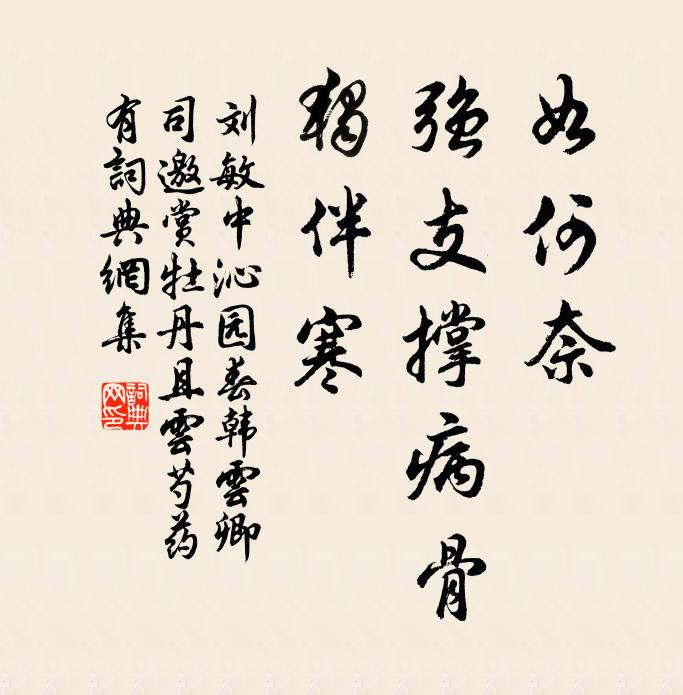 如何奈
强支撑病骨
独伴寒
刘敏中沁园春韩雲卿
司邀赏牡丹且雲芍药
有詞典網集
詞典
网印